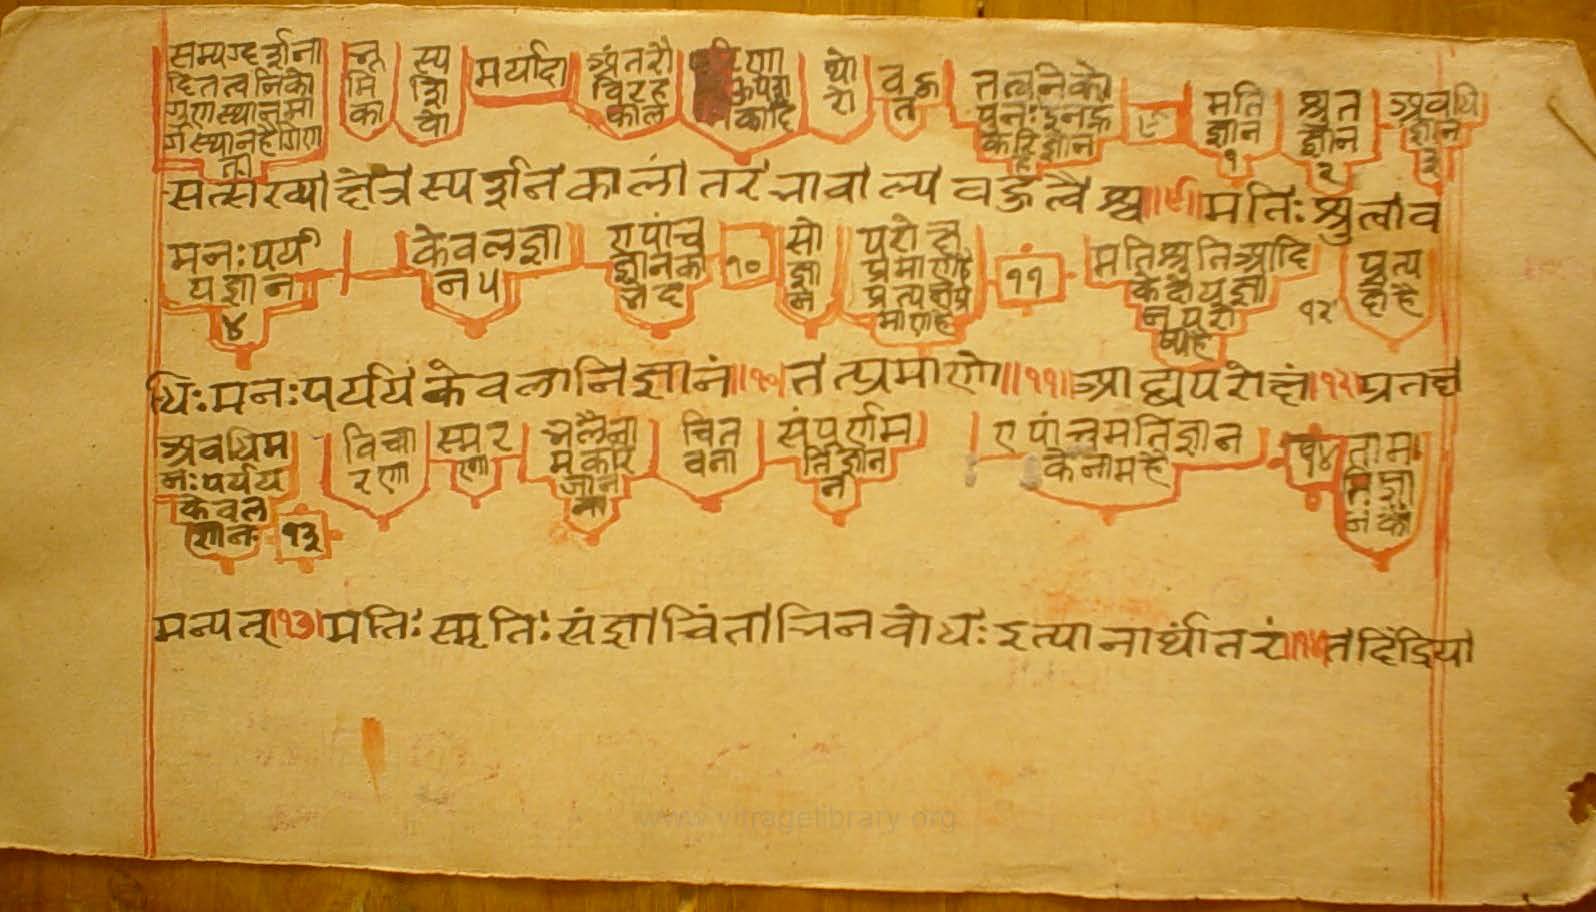 सम्यग्दर्शना
दितत्वनिको
गुणस्थानमा
र्गस्थानहैगिण
ती
भू
मि
का
स्प
र्शि
वो
मर्यादा
अंतरौ
विरह
काल
थो
रो
व ऊ
त
तत्वनिको
पुनः इनक
करि ज्ञान
है
९
मति
ज्ञान
१
श्रुत
ज्ञान
२
अवधि
ज्ञान
३
सत्संख्याक्षेत्रस्पर्शनकालांतरभावाल्पवऊत्वैश्च॥९॥मतिःश्रुताव
मनःपर्य
यज्ञान
४
केवलज्ञा
न५
एपांच
ज्ञानका
भेद
१०
सो
ज्ञा
न
परोक्ष
प्रमाणहै
प्रत्यक्षप्र
माणहै
११
मतिश्रुतिआदि
केदोयज्ञा
न परो
क्षहै
१२
प्रत्य
क्षहै
धिःमनःपर्ययकेवलानिज्ञानं॥१०॥तत्प्रमाणे॥११॥आद्यपरोक्षं॥१२॥प्रतक्ष
अवधिम
नःपर्यय
केवल
ज्ञान
१३
विचा
रणा
स्मर
णा
चित
वना
संपूर्णम
तिज्ञान
न
एपांचमतिज्ञान
केनामहै
१४
तामा
तिज्ञा
नको
मन्यत्॥१३॥मतिःस्मृतिःसंज्ञाचिंताभिनवोधःइत्यानार्थांतरं॥१४॥तदिंद्रिया
www.vitragelibrary.org